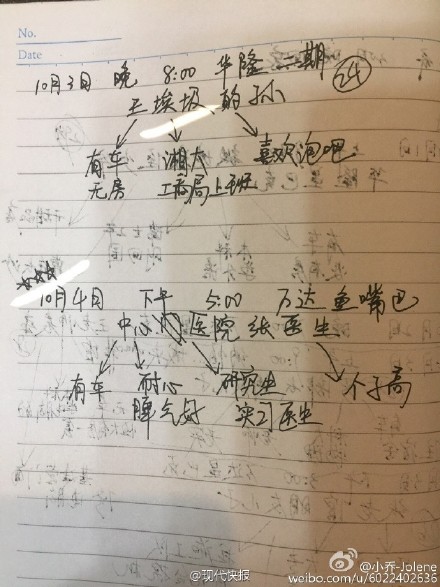 No.
Date
10月3日 晚 8:00 华隆二期 24
王埃圾 的孙
有车 湘大 喜欢泡吧
无房 工商局上班
10月4日 下午 5:00 万达鱼嘴巴
中心 医院 张医生
有车 耐心 研究生 个子高
脾气好 实习医生
@现代快报
@小乔-Jolene
weibo.com/u/6022402636